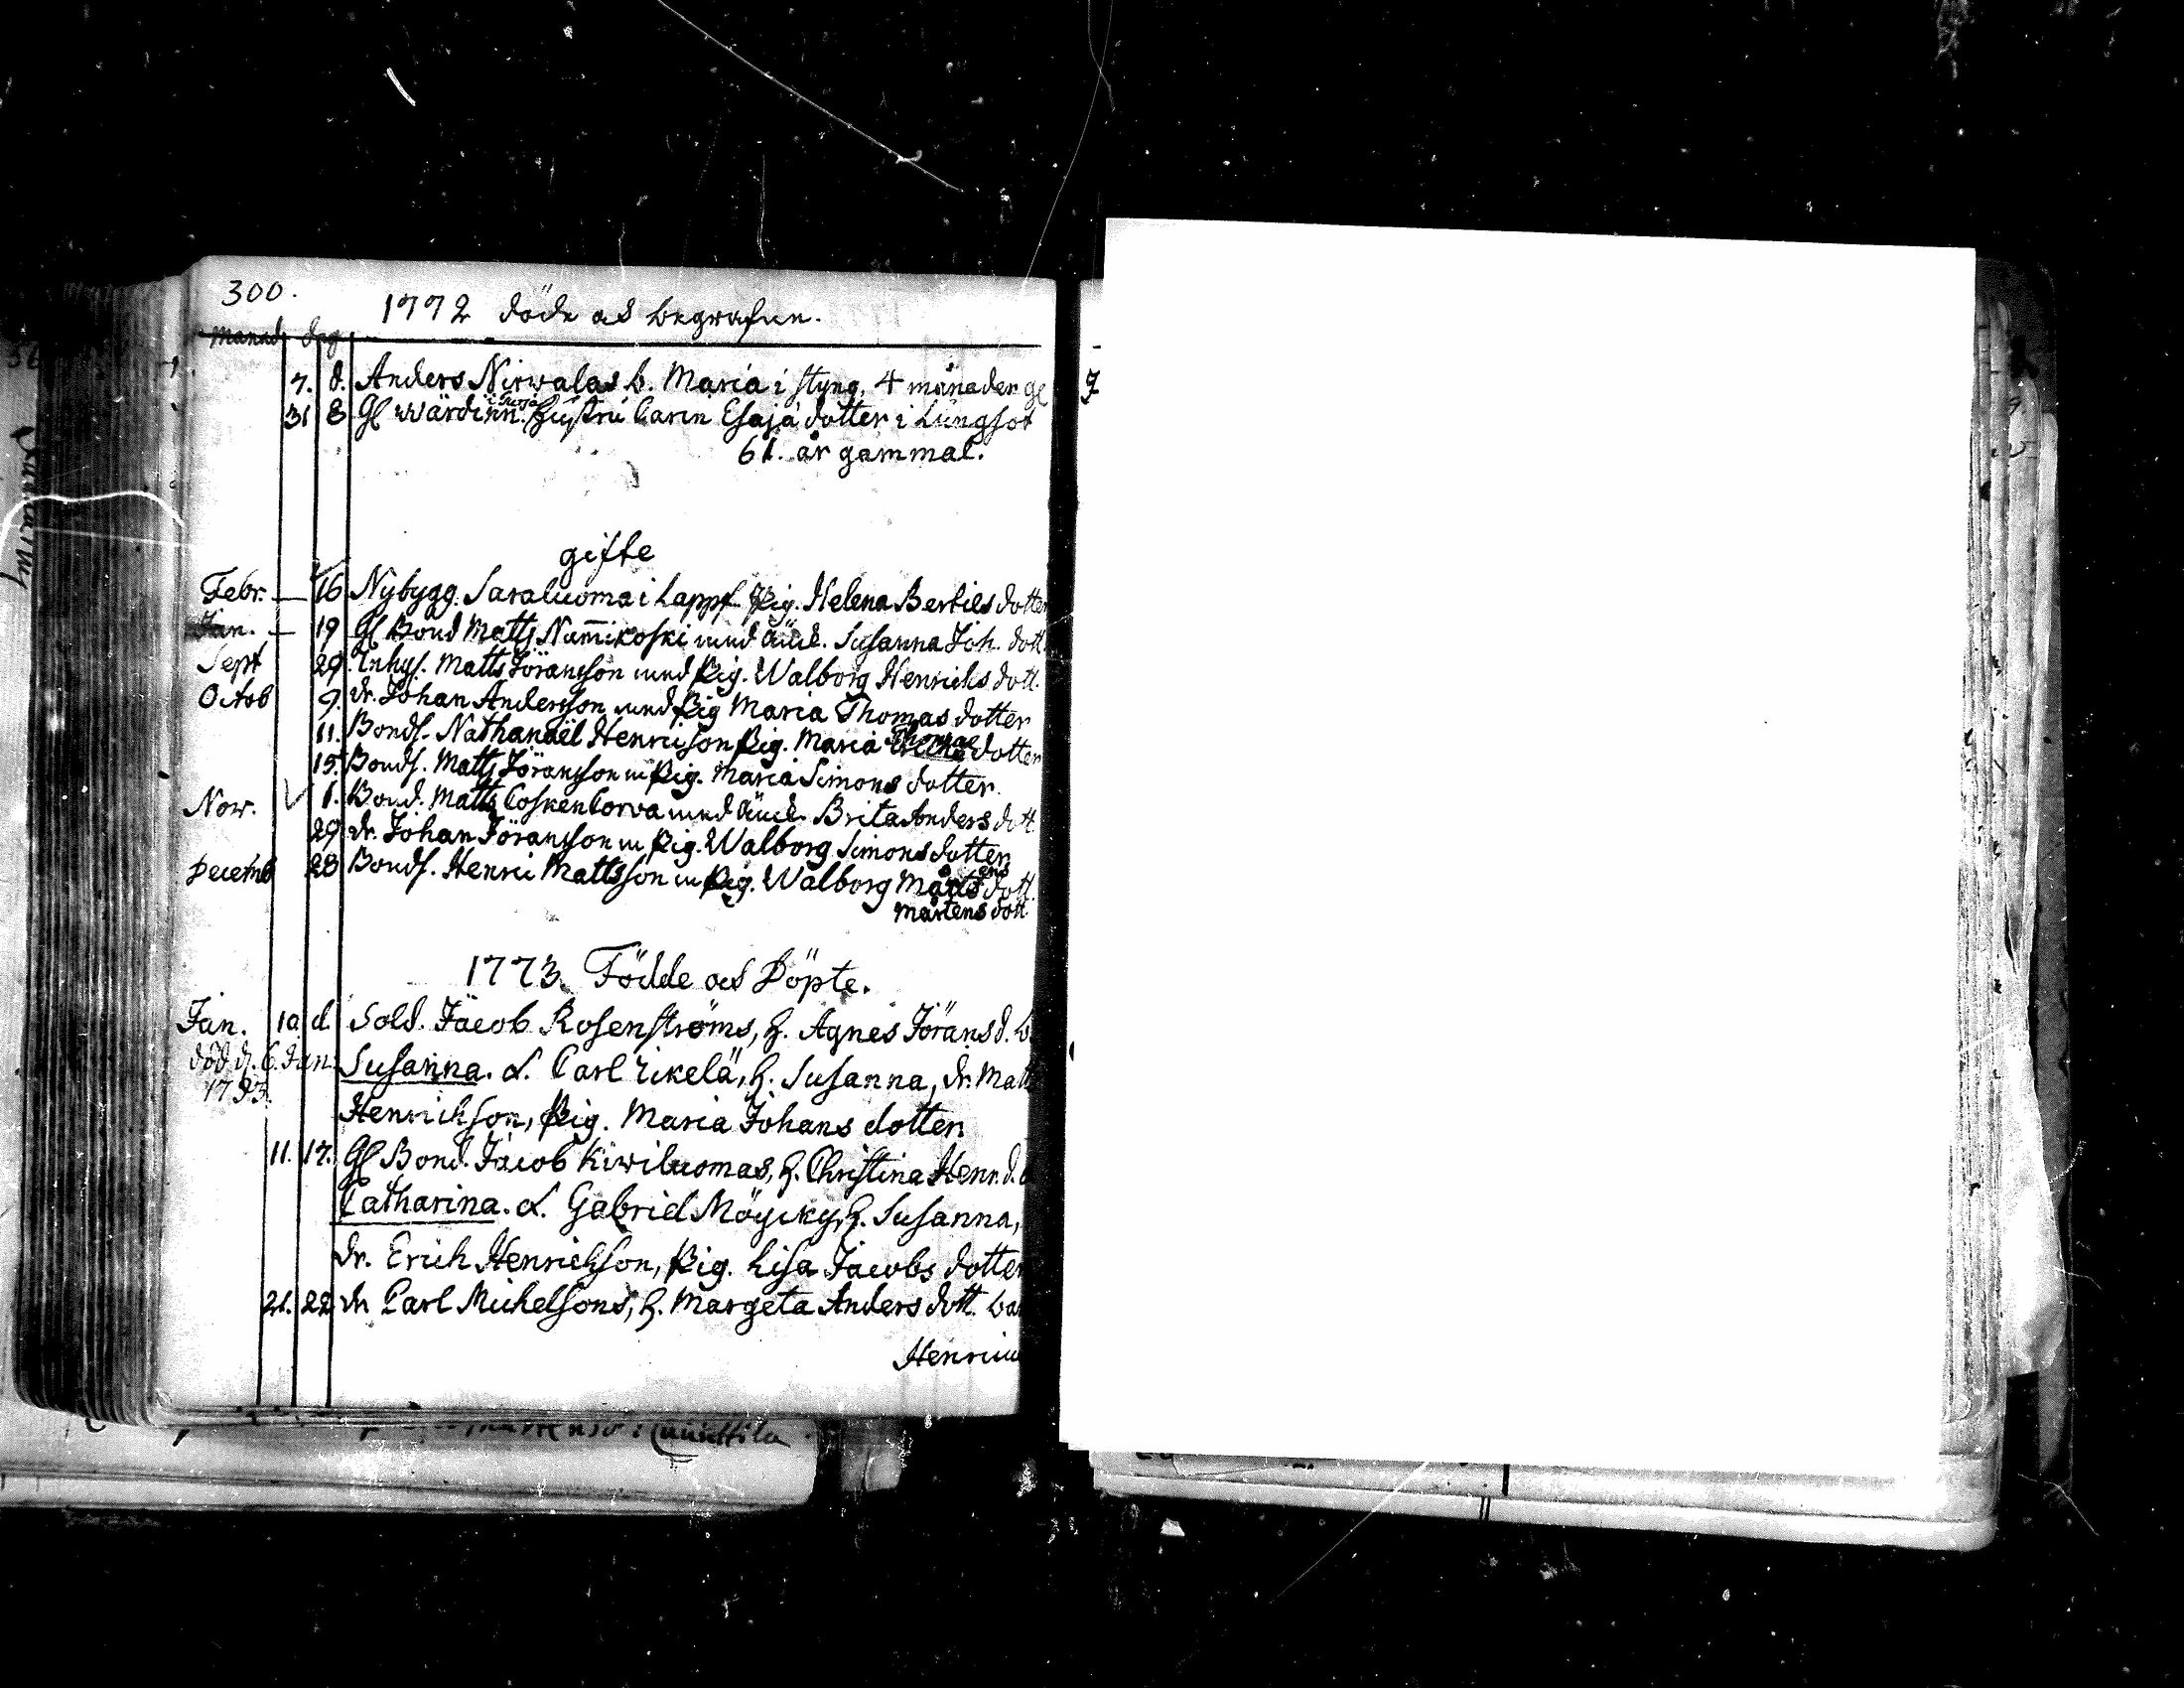 300.
1772 döde och begrafne.
Månad dag
7. d. Anders Nirwalas b. Maria i styng, 4 månader gl
31 8 Gl wärdinn. Hustru Carin Esaja dotter i Lungsot
61. år gammal.
gifte
Febr. — 16 Nybygg. Saraluoma i Lappf. Pig. Helena Bertils dotter
Jan. — 19 Gl Bond Matts Nummikoski med änk. Susanna Joh. dott.
Sept 29. Inhys. Matts Jöransson med Pig. Walborg Henrichs dott.
Octob 9. dr. Johan Andersson med Pig Maria Thomas dotter
11. Bonds. Nathanaël Henricson Pig. Maria Thomae dotter
15. Bonds. Matts Jöransson m Pig. Maria Simons dotter.
Nov. 1. Bond. Matts CoskenCorva med änk. Brita Anders dott.
29 dr. Johan Jöransson m Pig. Walborg Simons dotter
Decemb 28 Bonds. Henric Mattsson m Pig. Walborg Mårtens dott.
Mårtens dott
1773. Födde och Döpte.
Jan. 10. d. Sold. Jacob Rosenströms, h. Agnes Jörans d. b.
död d. 6. Jan. Susanna. d. Carl Eikelä, h. Susanna, dr. Matts
1773. Henrichson, Pig. Maria Johans dotter
11. 17. Gl Bond. Jacob Kiwiluomas, h. Christina Henr. d. b
Catharina. d. Gabriel Möyky, h. Susanna,
dr. Erich Henrichson, Pig. Lisa Jacobs dotter
21. 22. dr Carl Michelsons, h. Margeta Anders dott. bar
Henric